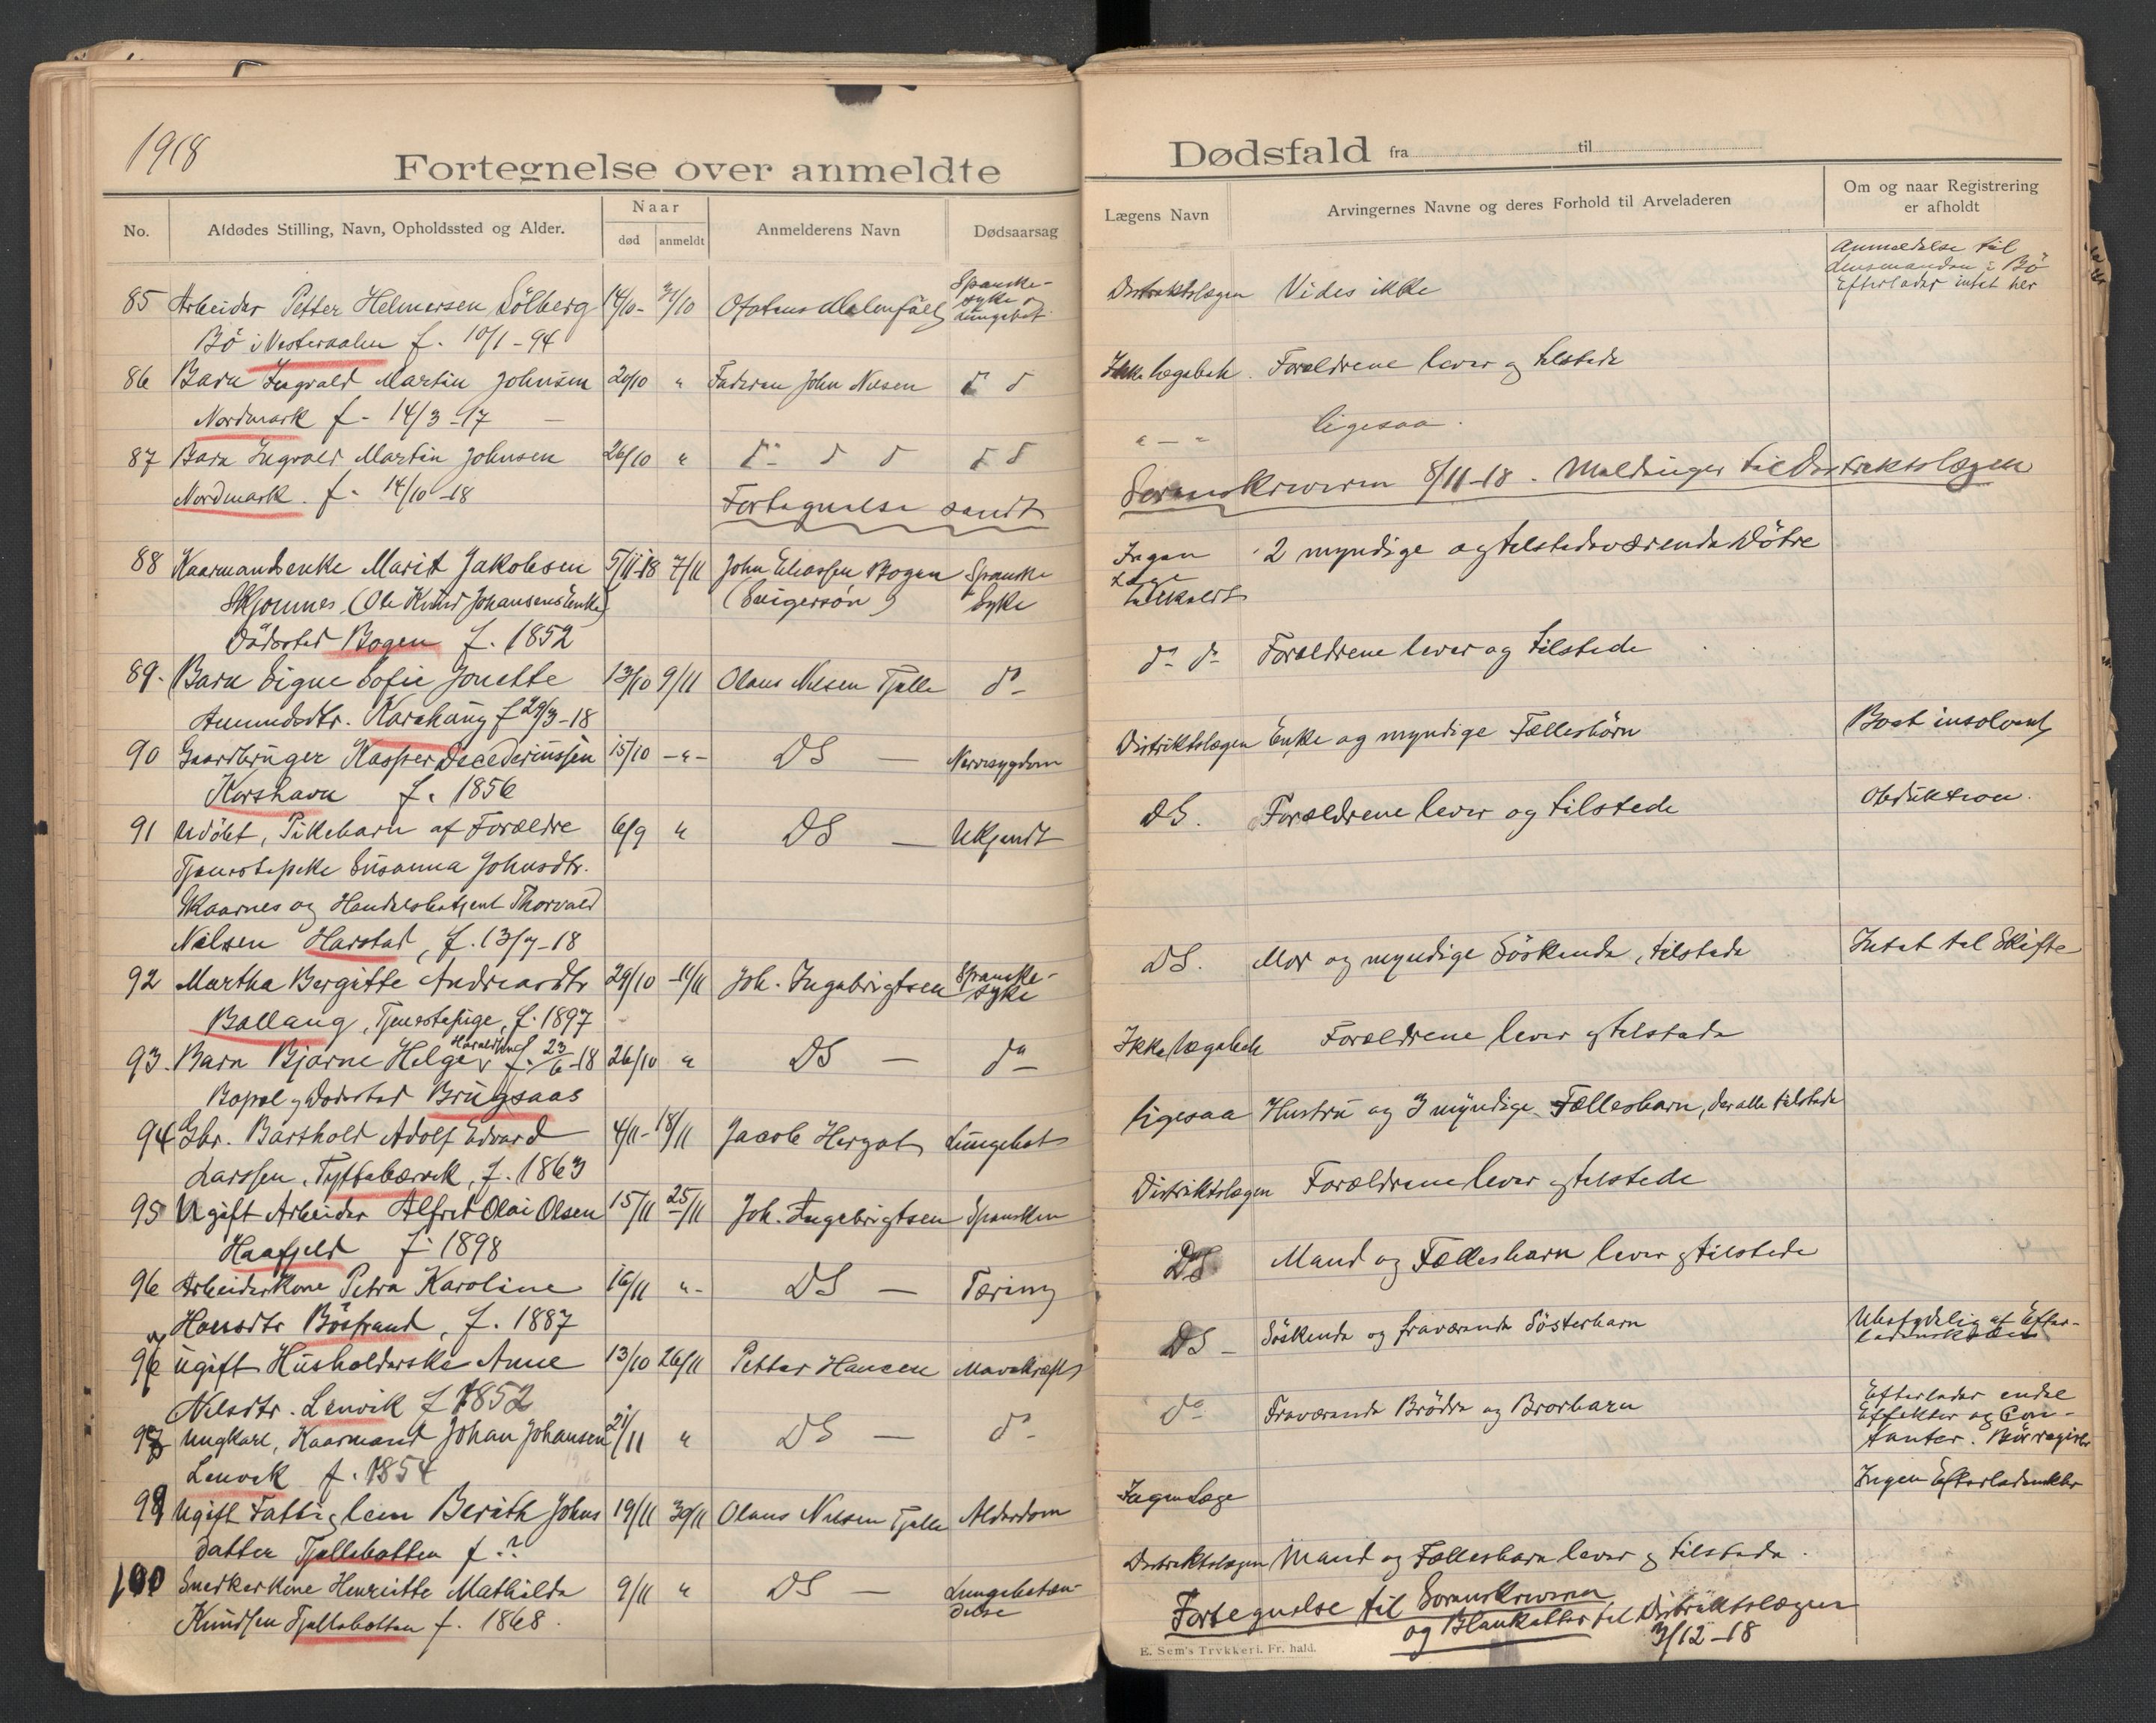 1918
Fortegnelse over anmeldte
No.
Afdødes Stilling, Navn, Opholdssted og Alder.
Naar
død
anmeldt
Anmelderens Navn
Dødsaarsag
85 Arbeider Petter Helmersen Sölberg 14/10 - 31/10 Spanske-
syke og
Lungebet
Bö i Vesteraalen f. 10/1-94
86 Barn Ingvald Martin Johnsen 20/10 " Faderen John Nilsen
Nordmark f. 14/3-17
87 Barn Ingvald Martin Johnsen 26/10 "
Nordmark f. 14/10-18
Fortegnelse sendt
88 Kaarmandsenke Marit Jakobsen 5/11-18 7/11 John Eliassen Bogen Spanske
Skjomnes, (Ole Johansens Enke) (Svigersøn) Syke
Dödssted Bogen f. 1852
89. Barn Signe Sofie Jonette 13/10 9/11 Olaus Nilsen Tjelle do
Amundsdtr. f 29/3-18
90 Gaardbruger Kasper 15/10 -"- DS — Nervesygdom
Korshavn f. 1856
91 Udöbt, Pikebarn af Forældre 6/9 " DS — Ukjendt
Tjenestepike Susanna Johnsdtr.
Skaarnes og Handelsbetjent Thorvald
Nilsen Harstad, f. 13/7-18
92 Martha Bergitte Andreasdtr 29/10 -11/11 Joh. Ingebrigtsen Spanske-
syke
Ballang, Tjenestepige, f. 1897
93. Barn Bjarne Helge Haraldsen f. 23/6-18 26/10 " DS — do
Bopæl og Dödssted Brugsaas
94 Gbr. Barthold Adolf Edvard 4/11- 18/11 Jacob Hergot Lungebet
Larssen, Tyttebærvik, f. 1863
95 Ugift Arbeider Alfred Olai Olsen 15/11 25/11 Joh. Ingebrigtsen Spansken
Haafjeld f. 1898
96 Arbeiderkone Petra Karoline 16/11 "- DS — Tæring
Hansdtr Böstrand, f. 1887
97 Ugift Husholderske Anne 13/10 26/11 Petter Hansen Mavekræft
Nilsdtr. Lenvik f 1852
98 Ungkarl, Kaarmand Johan Johansen 21/11 " DS — do
Lenvik f. 1854
99 Ugift Fattiglem Berith Johns 19/11 30/11 Olaus Nilsen Tjelle Alderdom
datter Tjellebotten f. ?
100 Snedkerkone Henriette Mathilde 9/11 " DS — Lungebetæn-
delse
Knudsen Tjellebotten f. 1868.
Dødsfald fra til
Lægens Navn
Arvingernes Navne og deres Forhold til Arveladeren
Om og naar Registrering
er afholdt
Anmeldelse til
Lensmanden i Bö
Efterlader intet her
Distriktslægen Vides ikke
Ikke lægebeh. Forældrene lever og tilstede
" — " ligesaa.
Sorenskriveren 8/11-18. Meldinger til Distriktslægen
Ingen 2 myndige og tilstedeværende Døtre
Læge
tilkaldt
do do Forældrene lever og tilstede
Distriktslægen Enke og myndige Fællesbörn Boet insolvent
DS. Forældrene lever og tilstede Obduktion.
DS. Mor og myndige Söskende, tilstede Intet til Skifte
Ikke lægebeh Forældrene lever og tilstede
ligesaa Hustru og 3 myndige Fællesbarn, der alle tilstede
Distriktslægen Forældrene lever og tilstede
DS Mand og Fællesbarn lever og tilstede
DS - Söskende og fraværende Sösterbarn Ubetydelig af Efter-
ladenskaber
do Fraværende Brödre og Brorbarn Efterlader endel
Effekter og Con-
tanter.
Ingen Læge Ingen Efterladenskber
Distriktslægen Mand og Fællesbarn lever og tilstede.
Fortegnelse til Sorenskriveren
og Blanketter til Distriktslægen
3/12-18
E. Sem's Trykkeri. Fr. hald.